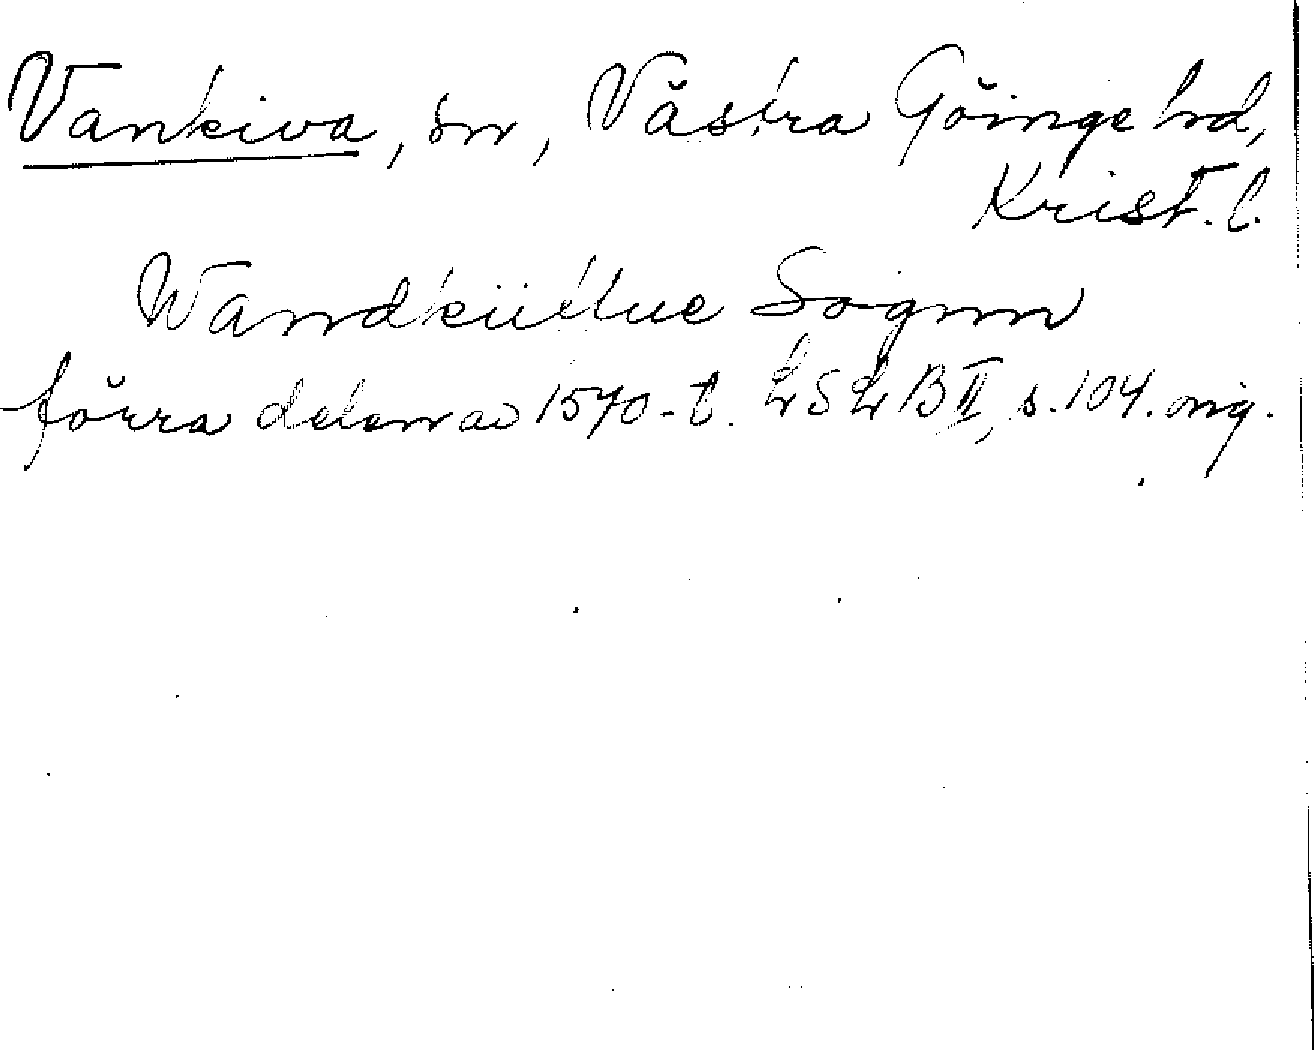 Vankiva, sn, Västra Göinge hd,
Krist. l.
Wandküttue Sognn
förra delen av 1570-t. LSLB II, s. 104. orig.